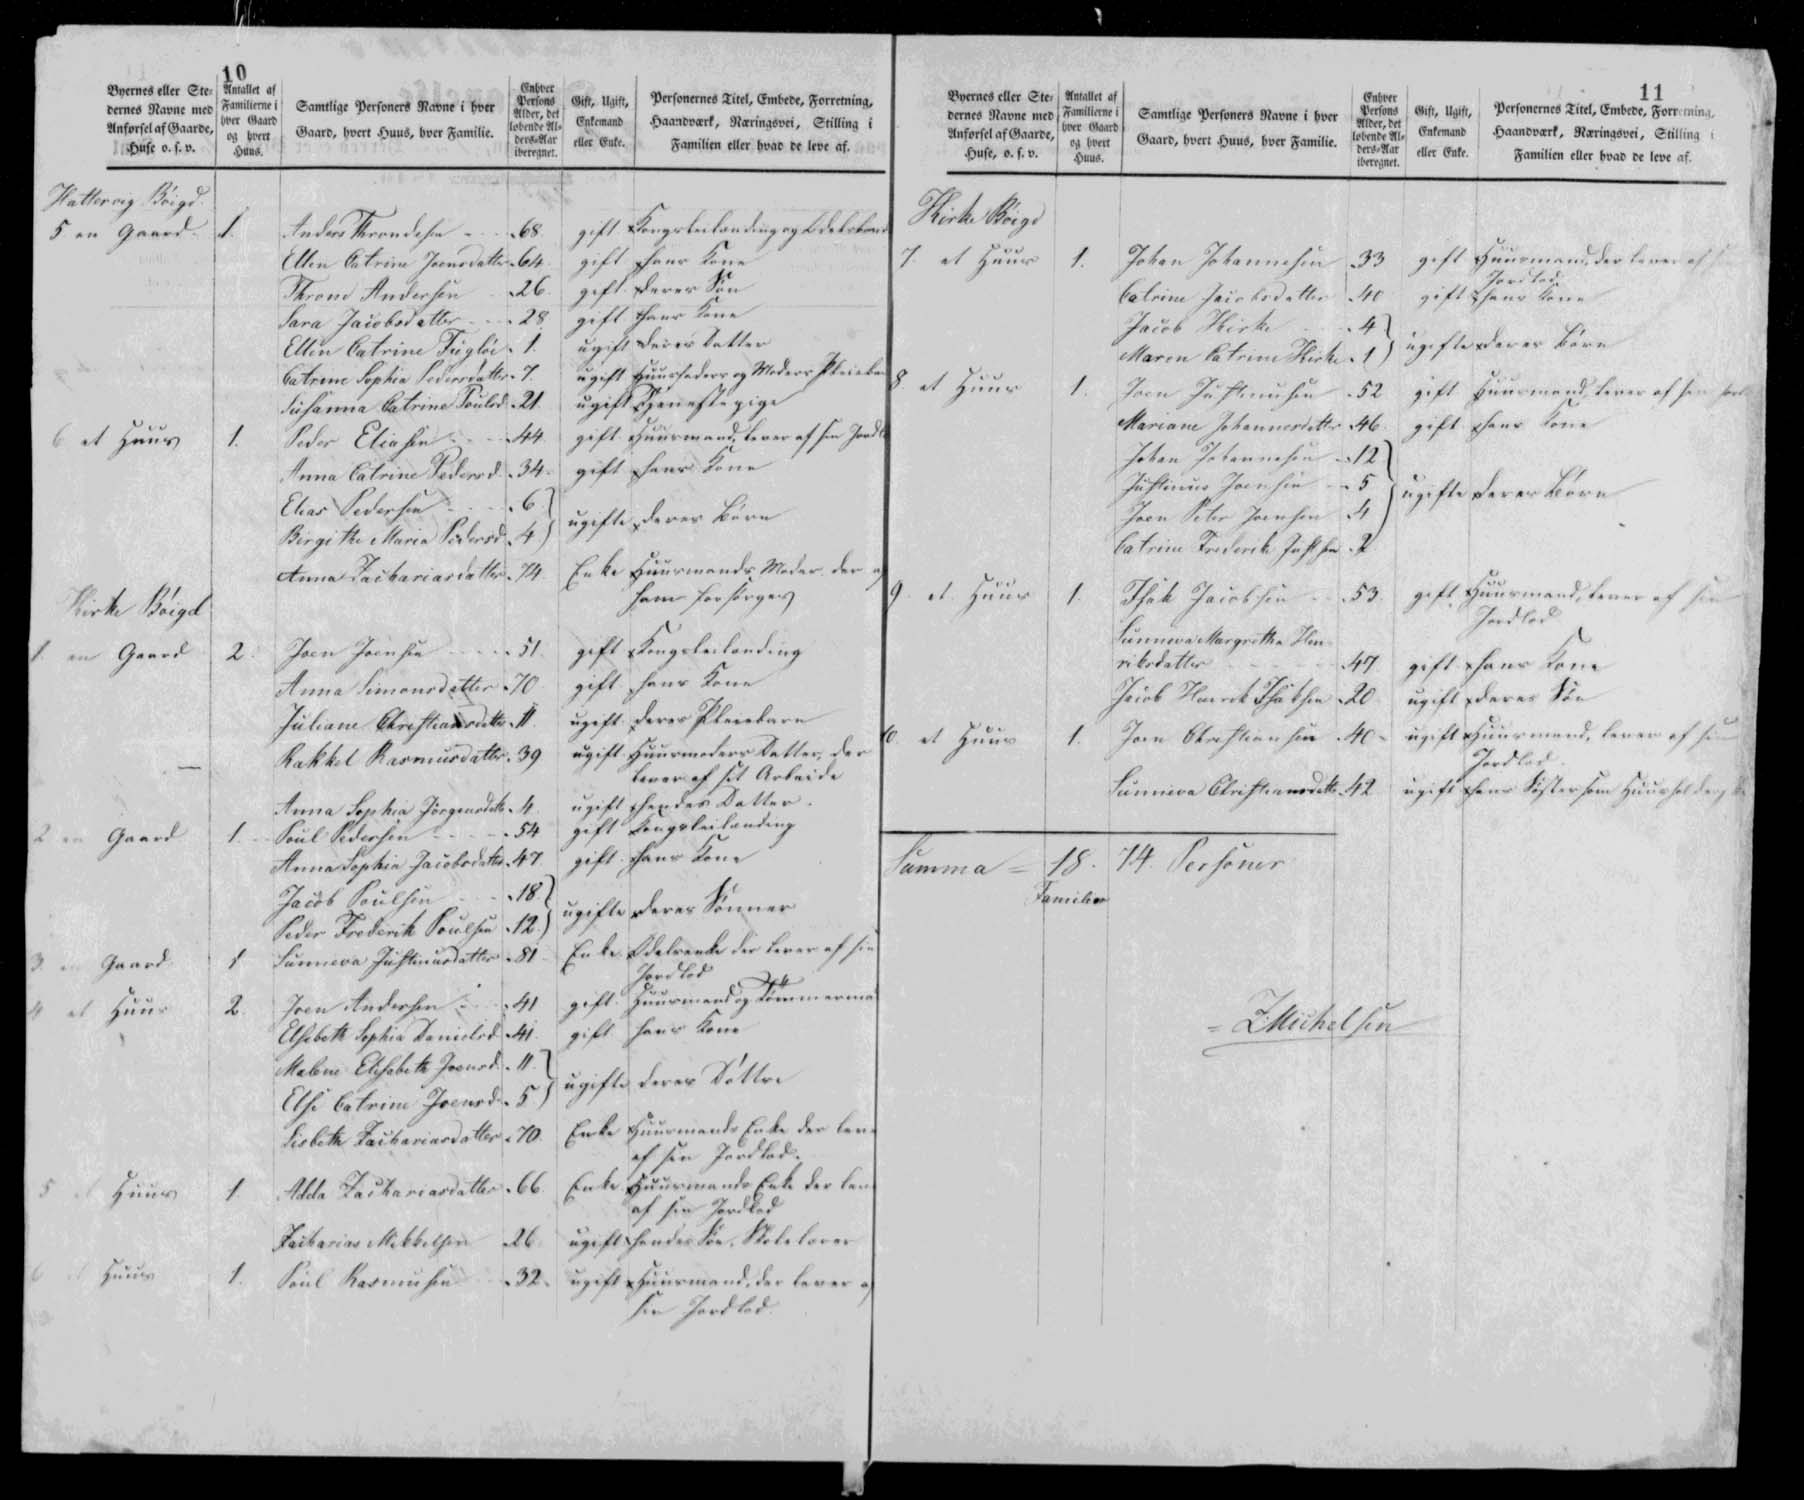 10
Byernes eller Ste-
dernes Navne med
Anførsel af Gaarde,
Huse o. s. v.
Antallet af
Familierne i
hver Gaard
og hvert
Huus.
Samtlige Personers Navne i hver
Gaard, hvert Huus, hver Familie.
Enhver
Persons
Alder, det
løbende Al-
ders-Aar
iberegnet.
Gift, Ugift,
Enkemand
eller Enke.
Personernes Titel, Embede, Forretning,
Haandværk, Næringsvei, Stilling i
Familien eller hvad de leve af.
Hattervig Bøigd.
5 en Gaard 1. Anders Throndesen 68. gift Kongsleilænding og Odelsbonde
Ellen Catrine Joensdatter 64. gift hans Kone
Thrond Andersen 26. gift deres Søn
Sara Jacobsdatter 28 gift hans Kone
Ellen Catrine Fugløe 1. ugift deres Datter
Catrine Sophia Pedersdatter 7. ugift Huusfaders og Moders Pleiebarn
Susanna Catrine Poulsd. 21. ugift Tjenestepige
6 et Huus 1. Peder Eliasen 44. gift Huusmand, lever af sin Jordl
Anna Catrine Pedersd. 34. gift hans Kone
Elias Pedersen 6
Birgithe Maria Pedersd. 4 ugifte deres Børn
Anna Zachariasdatter 74. Enke Huusmands Moder der af
ham forsørges
Kirke Bøigd
1. en Gaard 2. Joen Joensen 51. gift Kongsleilænding
Anna Simonsdatter 70 gift hans Kone
Juliane Christiansdatter 11. ugift deres Pleiebarn
Rakkel Rasmusdatter 39 ugift Huusmoders Datter, der
lever af sit Arbeide
Anna Sophia Jørgensdatter 4. ugift hendes Datter.
2 en Gaard 1. Poul Pedersen 54 gift Kongsleilænding
Anna Sophia Jacobsdatter 47. gift hans Kone
Jacob Poulsen 18.
Peder Frederik Poulsen 12. ugifte deres Sønner
3. en Gaard 1 Sunneva Justinusdatter 81 Enke Odelsenke der lever af sin
Jordlod
4 et Huus 2. Joen Andersen 41 gift Huusmand og Tømmerma
Elsebeth Sophia Danielsd. 41. gift hans Kone
Malene Elisabeth Joensd. 11.
Else Catrine Joensd. 5 ugifte deres Døttre
Lisbeth Zachariasdatter 70. Enke Huusmands Enke der lever
af sin Jordlod.
5 et Huus 1. Adda Zachariasdatter 66. Enke Huusmands Enke der lev
af sin Jordlod
Zacharias Mikkelsen 26. ugift hendes Søn, Skolelærer
6 et Huus 1. Poul Rasmusen 32. ugift Huusmand, der lever af
sin Jordlod.
11
Byernes eller Ste-
dernes Navne med
Anførsel af Gaarde,
Huse, o. s. v.
Antallet af
Familierne i
hver Gaard
og hvert
Huus.
Samtlige Personers Navne i hver
Gaard, hvert Huus, hver Familie.
Enhver
Persons
Alder, det
løbende Al-
ders-Aar
iberegnet.
Gift, Ugift,
Enkemand
eller Enke.
Personernes Titel, Embede, Forretning,
Haandværk, Næringsvei, Stilling i
Familien eller hvad de leve af.
Kirke Bøigd
7. et Huus 1. Johan Johannesen 33 gift Huusmand, der lever af
Jordlod
Catrine Jacobsdatter 40 gift hans Kone
Jacob Kirke 4
Maren Catrine Kirke 1 ugifte deres Børn
8. et Huus 1. Joen Justinusen 52 gift Huusmand, lever af sin Jord
Mariane Johannesdatter 46. gift hans Kone
Johan Johannesen 12
Justinus Joensen 5
Joen Peter Joensen 4 ugifte deres Børn
Catrine Frederik 2
9. et Huus 1. Isak Jacobsen 53. gift Huusmand, lever af sin
Jordlod
Sunneva Margretha Hen-
riksdatter 47 gift hans Kone
Jacob Henrik Isaksen 20. ugift deres Søn
10. et Huus 1. Joen Christiansen 40 ugift Huusmand, lever af sin
Jordlod.
Sunneva Christiansdatter 42 ugift hans Søster som Huusholderske
Summa = 18. 74. Personer
Familier
= Z Michelsen